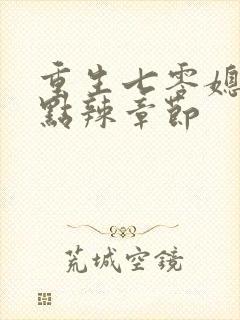 重生七零媳
點辣章節
荒城空鏡